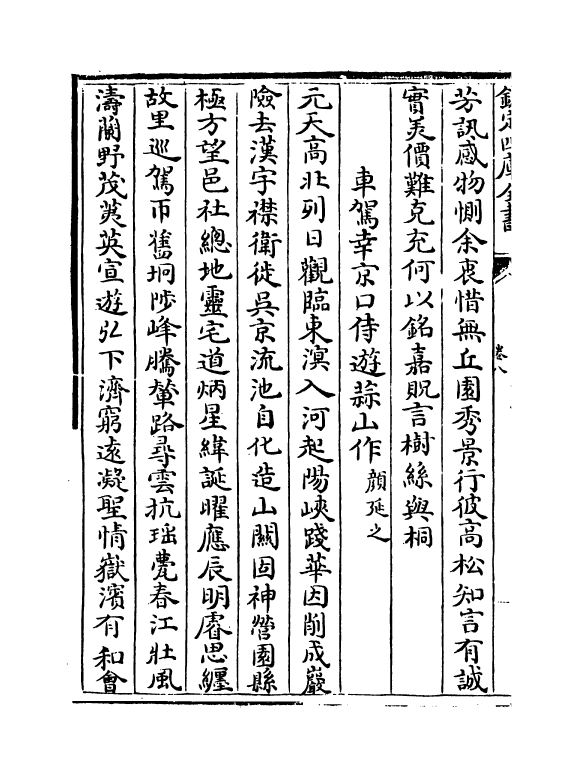 欽定四庫全書
卷八
芳訊感物惻余衷惜無丘園秀景行彼高松知言有誠
實美價難克充何以銘嘉貺言樹絲與桐
車駕幸京口侍遊蒜山作 顔延之
元天高北列日觀臨東溟入河起陽峽踐華因削成巖
險去漢宇襟衛徙吳京流池自化造山關固神營園縣
極方望邑社總地靈宅道炳星緯誕曜應辰明睿思纒
故里巡駕帀舊坰陟峰騰輦路尋雲抗瑶甍春江壯風
濤蘭野茂荑英宣遊弘下濟窮遠凝聖情嶽濱有和會